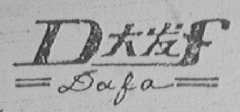 D大发f
Dafa